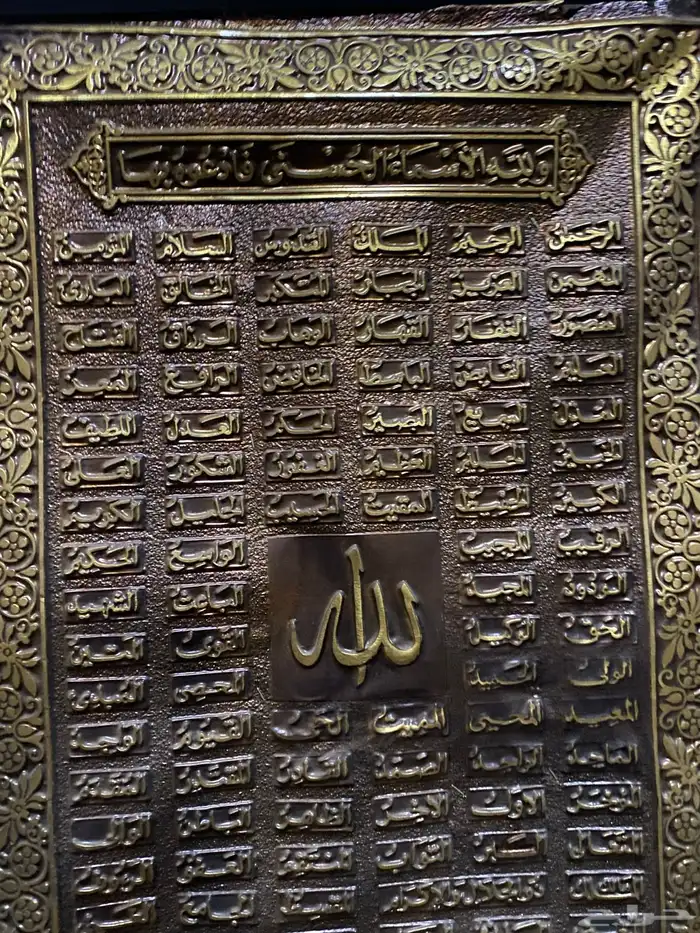 ولله الأسماء الحسنى فادعوه بها
الرحمن الرحيم الملك القدوس السلام المؤمن
المهيمن العزيز الجبار المتكبر الخالق البارئ
المصور الغفار القهار الوهاب الرزاق الفتاح
العليم القابض الباسط الخافض الرافع المعز
المذل السميع البصير الحكم العدل اللطيف
الخبير الحليم العظيم الغفور الشكور العلي
الكبير الحفيظ المقيت الحسيب الجليل الكريم
الرقيب المجيب الواسع الحكيم
الودود المجيد الباعث الشهيد
الله
الحق الوكيل القوي المتين
الولي الحميد المحصي المبدئ
المعيد المحيي المميت الحي القيوم الواجد
الماجد الواحد الصمد القادر المقتدر المقدم
المؤخر الأول الآخر الظاهر الباطن الوالي
المتعالي البر التواب المنتقم العفو الرؤوف
مالك الملك ذو الجلال والإكرام المقسط الجامع الغني